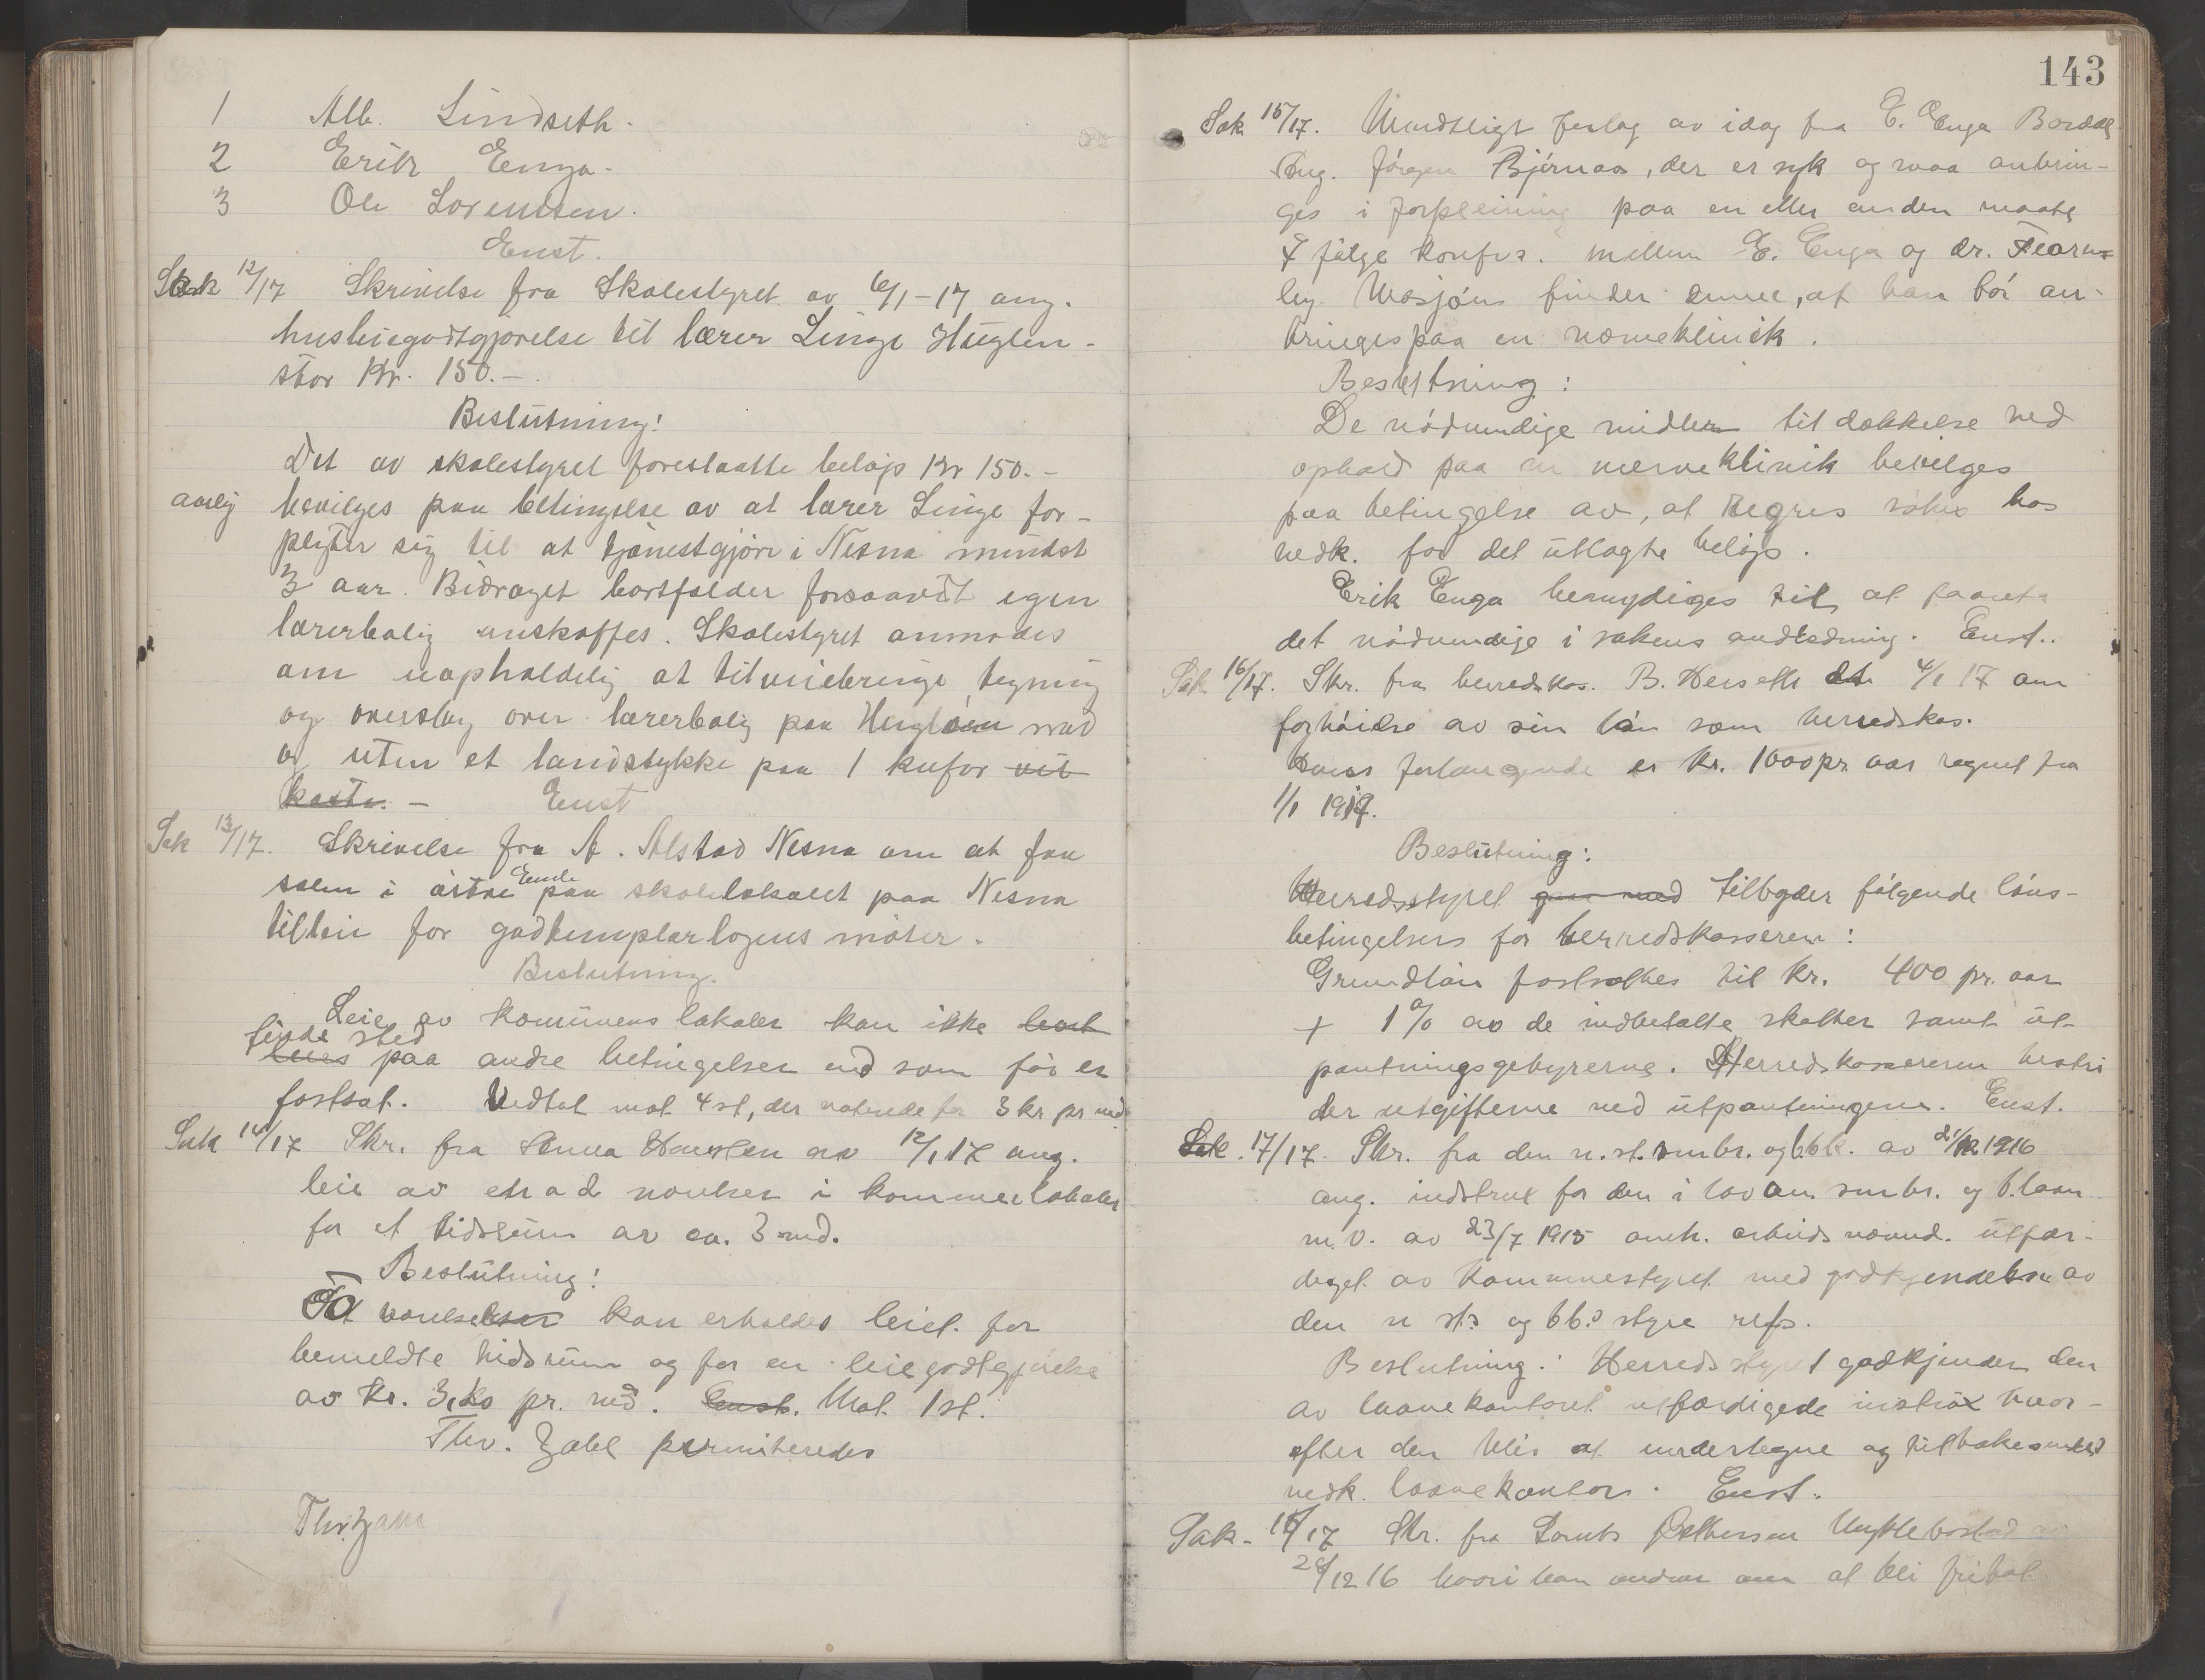 1 Alb. Lindseth.
2 Erik Enga.
3 Ole Lorentsen.
Enst.
Sak 12/17 Skrivelse fra Skolestyret av 6/1-17 ang.
husleiegodtgjørelse til lærer Linge Huglen -
stor Kr. 150.-
Beslutning!
Det av skolestyret foreslaatte beløp Kr 150.-
aarlig bevilges paa betingelse av at lærer Linge for-
plikter sig til at tjenestgjøre i Nesna mindst
3 aar. Bidraget bortfalder forsaavidt egen
lærerbolig anskaffes. Skolestyret anmodes
om uopholdelig at tilveiebringe tegning
og overslag over lærerbolig paa Hugløen med
og uten et landstykke paa 1 kufor vil
koste. - Enst
Sak 13/17. Skrivelse fra A. Alstad Nesna om at faa
salen i østre Ende paa skolelokalet paa Nesna
tilleie for godtemplarlogens møter.
Beslutning.
Leie av kommunens lokaler kan ikke
finde sted
leies paa andre betingelser end som før er
fastsat. Vedtat mot 4 st, der voterede for 3 kr pr md
Sak 14/17 Skr. fra Anna av 12/1 17 ang.
leie av et a 2 værelser i kommunelokalet
for et tidsrum av ca. 3 md.
Beslutning!
To værelser kan erholdes leiet for
bemeldte tidsrum og for en leiegodtgjørelse
av kr. pr. md. Enst. Mot 1 st.
Thv. Zahl permiteredes
Thv. Zahl
143
Sak 15/17. Mundtligt forslag av idag fra E. Enga Bardal
ang. Jørgen Bjørnaas, der er syk og maa anbrin-
ges i forpleining paa en eller anden maate
I følge konfrs. mellem E. Enga og dr. Fearn-
ley Mosjøen finder denne, at han bør an-
bringes paa en nerveklinik.
Beslutning:
De nødvendige midler til dækkelse ved
ophold paa en nerveklinik bevilges
paa betingelse av, at regres søkes hos
vedk. for det utlagte beløp.
Erik Enga bemyndiges til at foreta
det nødvendige i sakens andledning. Enst..
Sak 16/17. Skr. fra herredskas. B. Herseth dt. 4/1 17 om
forhøielse av sin løn som herredskas.
Hvers forlangende er kr. 1000 pr. aar regnet fra
1/1 1917.
Beslutning:
Herredsstyret tilbyder følgende løns-
betingelser for herredskasseren:
Grundløn fastsættes til kr. 400 pr. aar
+ 1% av de indbetalte skatter samt ut-
pantningsgebyrerne. Herredskassereren bestri
der utgifterne ved utpantningene. Enst.
Sak. 17/17. Skr. fra den n. st. smbr. og b.bk. av 21/12 1916
ang. instrux for den i lov om smbr. og b.laan
m.v. av 23/7 1915 omh. arbeidsnævnd. utfær-
diget av kommunestyret med godkjendelse av
den n st.s og bb.s styre refs.
Beslutning: Herredsstyret godkjender den
av laanekontoret utfærdigede instrux hvor-
efter den blir at undertegne og tilbakesendes
vedk. laanekontor. Enst.
Sak - 18/17 Skr. fra
28/12 16 hvori han andrar om at bli fritat